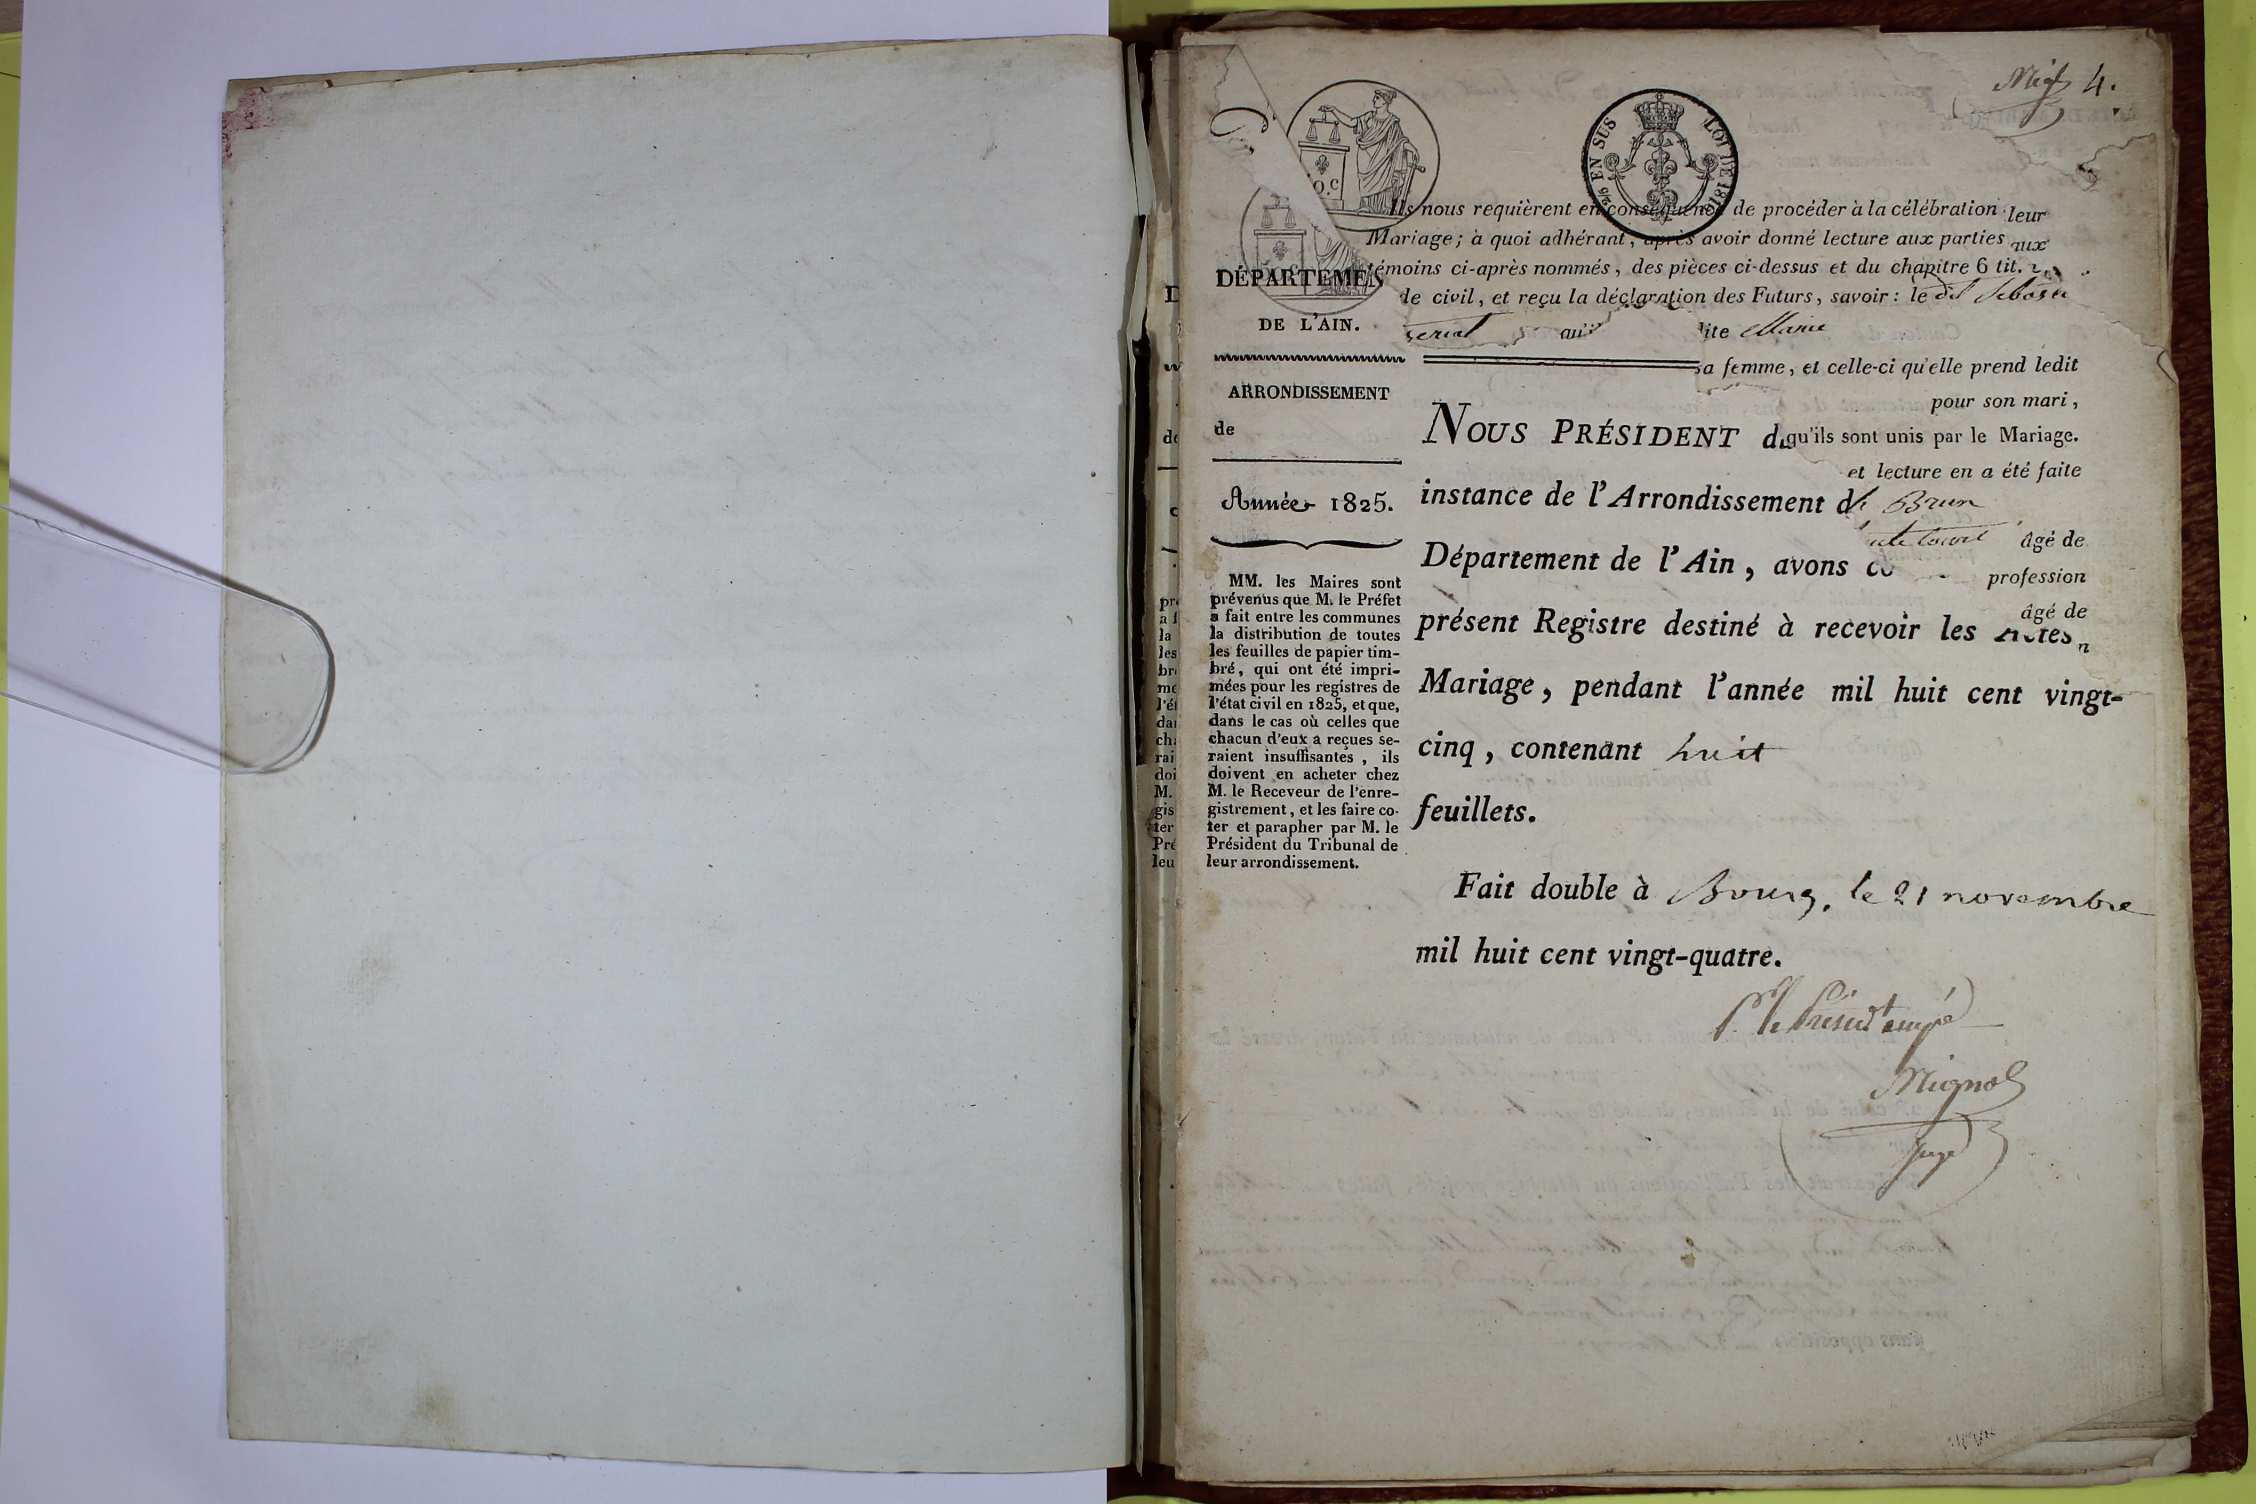 4.
2/5 EN SUS
LOI DE 1816
Ils nous requièrent en conséquence de procéder à la célébration leur
Mariage ; à quoi adhérant, après avoir donné lecture aux parties aux
témoins ci-après nommés, des pièces ci-dessus et du chapitre 6 tit.
de civil, et reçu la déclaration des Futurs, savoir : le dit
qu'il
dite Marie
sa femme, et celle-ci qu'elle prend ledit
pour son mari,
qu'ils sont unis par le Mariage.
et lecture en a été faite
Brun
âgé de
profession
âgé de
DÉPARTEMEN
DE L'AIN.
ARRONDISSEMENT
de
Année 1825.
MM. les Maires sont
prévenus que M. le Préfet
a fait entre les communes
la distribution de toutes
les feuilles de papier tim-
bré, qui ont été impri-
mées pour les registres de
l'état civil en 1825, et que,
dans le cas où celles que
chacun d'eux a reçues se-
raient insuffisantes, ils
doivent en acheter chez
M. le Receveur de l'enre-
gistrement, et les faire co-
ter et parapher par M. le
Président du Tribunal de
leur arrondissement.
NOUS PRÉSIDENT du
instance de l'Arrondissement d
Département de l'Ain, avons co
présent Registre destiné à recevoir les Actes
Mariage, pendant l'année mil huit cent vingt-
cinq, contenant huit
feuillets.
Fait double à Bourg, le 21 novembre
mil huit cent vingt-quatre.
P. le Présid.t empé
Mignot
juge